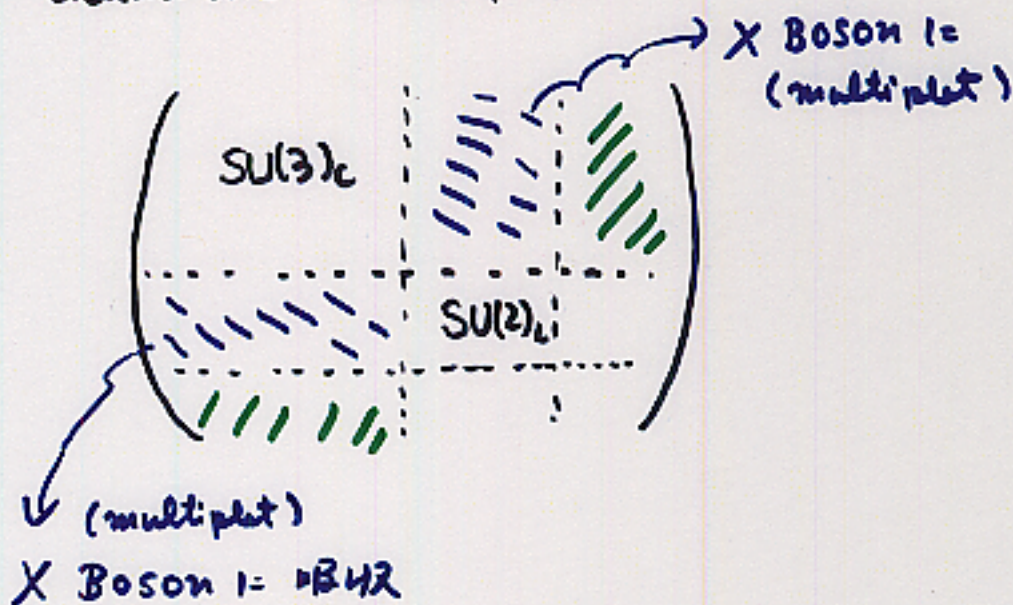 X Boson に
(multiplet)
SU(3)c
SU(2)L
(multiplet)
X Boson に